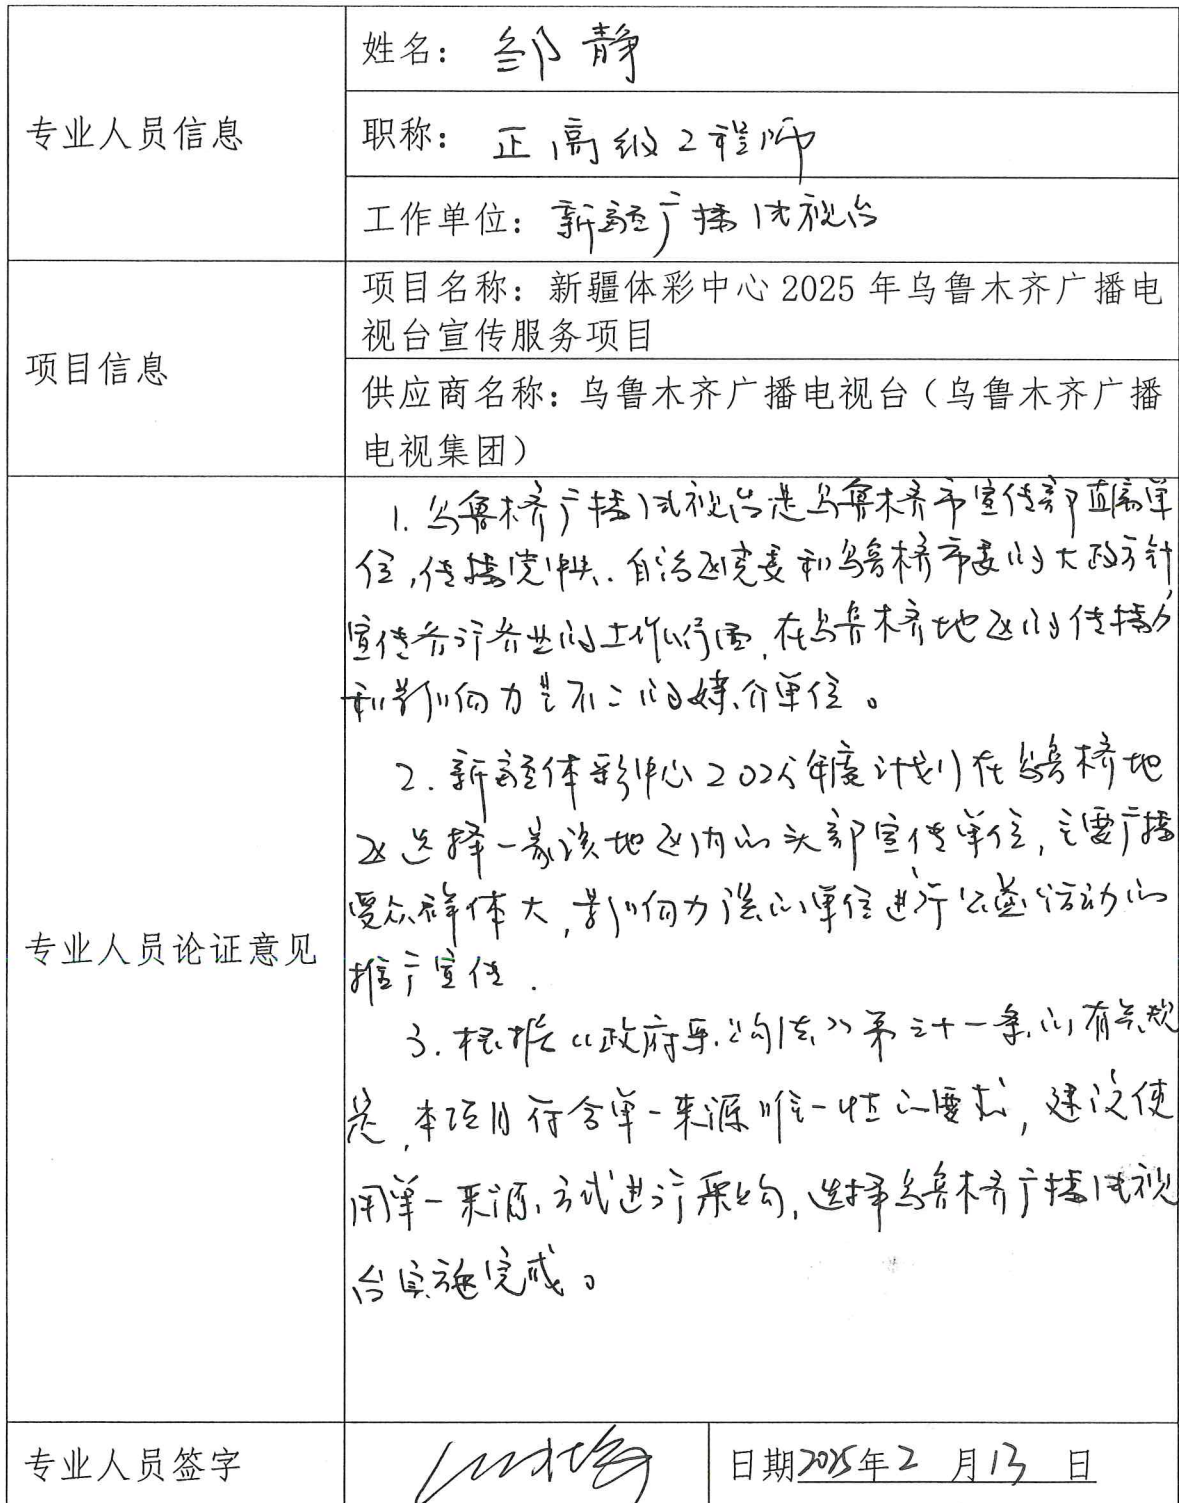 专业人员信息
姓名：邹静
职称：正高级工程师
工作单位：新疆广播电视台
项目信息
项目名称：新疆体彩中心 2025 年乌鲁木齐广播电
视台宣传服务项目
供应商名称：乌鲁木齐广播电视台（乌鲁木齐广播
电视集团）
专业人员论证意见
1. 乌鲁木齐广播电视台是乌鲁木齐市宣传部直属单
位，传播党中央、自治区党委和乌鲁木齐市委的大政方针
宣传各行各业的工作，在乌鲁木齐地区的传播力
和影响力是不二的媒介单位。
2. 新疆体彩中心2025年度计划在乌鲁木齐地
区选择一家该地区内的头部宣传单位，主要广播
受众群体大，影响力强的单位进行公益活动的
推广宣传.
3. 根据《政府采购法》第三十一条的有关规
定，本项目符合单一来源唯一性的要求，建议使
用单一来源方式进行采购，选择乌鲁木齐广播电视
台实施完成。
专业人员签字
日期2025年2 月13 日